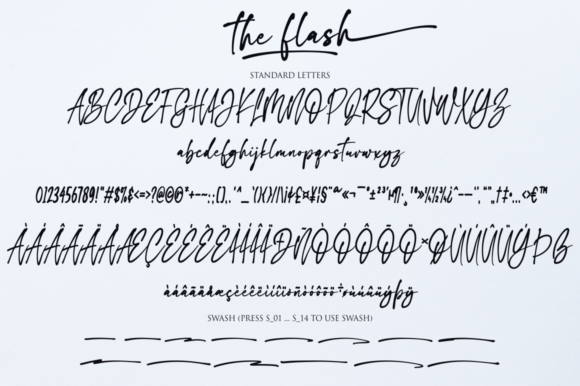 the flash
STANDARD LETTERS
ABCDEFGHIJKLMNOPQRSTUVWXYZ
abcdefghijklmnopqrstuvwxyz
0123456789!"#$%&<=>?@©®*+-~:;[],.'^_`{×}/|\¡¢£¤¥¦§¨ª«¬¯°±²³´µ¶·¸¹º»¼½¾¿ˆ–—‘’‚“”„†‡•…‹›€™
ÀÁÂÃÄÅÆÇÈÉÊËÌÍÎÏÐÑÒÓÔÕÖ×ØÙÚÛÜÝÞß
àáâãäåæçèéêëìíîïðñòóôõö÷øùúûüýþÿ
SWASH (PRESS S_01 ... S_14 TO USE SWASH)